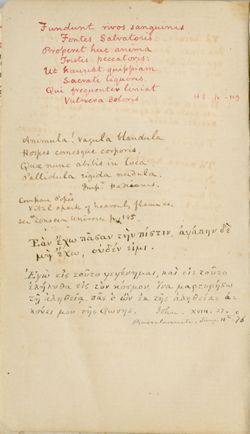 Fundunt rivos sanguinis
Fontes Salvatoris
Properet huc anima
Tristis peccatoris;
Ut hauriat quippiam
Sacrati liquoris,
Qui frequenter leniat
Vulnera doloris
Animula! Vagula blandula
Hospes comesque corporis.
Quae nunc abibis in loca
Pallidula rigida nudula.
Imp. Hadrianus.
Compare Pope
Vital spark of heavenly flame &c.
Ἐὰν ἔχω πᾶσαν τὴν πίστιν, ἀγάπην δὲ
μὴ ἔχω, οὐδέν εἰμι.
Ἐγὼ εἰς τοῦτο γεγέννημαι, καὶ εἰς τοῦτο
ἐλήλυθα εἰς τὸν κόσμον, ἵνα μαρτυρήσω
τῇ ἀληθείᾳ. πᾶς ὁ ὢν ἐκ τῆς ἀληθείας ἀ-
κούει μου τῆς φωνῆς. John. XVIII. 37.